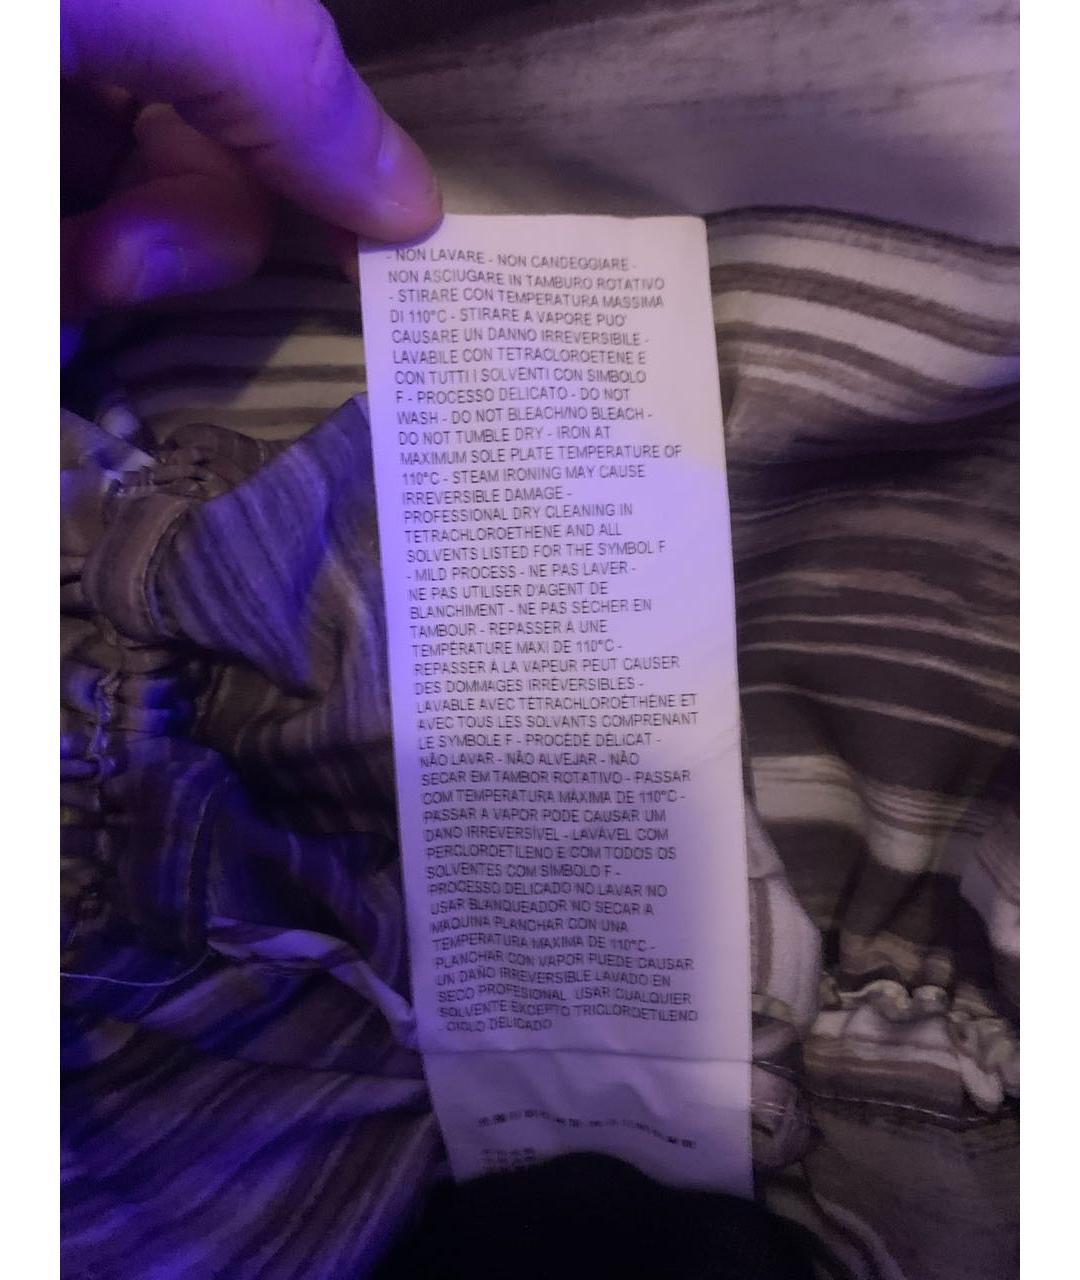 - NON LAVARE - NON CANDEGGIARE -
NON ASCIUGARE IN TAMBURO ROTATIVO
- STIRARE CON TEMPERATURA MASSIMA
DI 110°C - STIRARE A VAPORE PUO'
CAUSARE UN DANNO IRREVERSIBILE -
LAVABILE CON TETRACLOROETENE E
CON TUTTI I SOLVENTI CON SIMBOLO
F - PROCESSO DELICATO - DO NOT
WASH - DO NOT BLEACH/NO BLEACH -
DO NOT TUMBLE DRY - IRON AT
MAXIMUM SOLE PLATE TEMPERATURE OF
110°C - STEAM IRONING MAY CAUSE
IRREVERSIBLE DAMAGE -
PROFESSIONAL DRY CLEANING IN
TETRACHLOROETHENE AND ALL
SOLVENTS LISTED FOR THE SYMBOL F
- MILD PROCESS - NE PAS LAVER -
NE PAS UTILISER D'AGENT DE
BLANCHIMENT - NE PAS SÉCHER EN
TAMBOUR - REPASSER À UNE
TEMPÉRATURE MAXI DE 110°C -
REPASSER À LA VAPEUR PEUT CAUSER
DES DOMMAGES IRRÉVERSIBLES -
LAVABLE AVEC TÉTRACHLOROÉTHÈNE ET
AVEC TOUS LES SOLVANTS COMPRENANT
LE SYMBOLE F - PROCÉDÉ DÉLICAT -
NÃO LAVAR - NÃO ALVEJAR - NÃO
SECAR EM TAMBOR ROTATIVO - PASSAR
COM TEMPERATURA MÁXIMA DE 110°C -
PASSAR A VAPOR PODE CAUSAR UM
DANO IRREVERSÍVEL - LAVÁVEL COM
PERCLOROETILENO E COM TODOS OS
SOLVENTES COM SÍMBOLO F -
PROCESSO DELICADO NO LAVAR NO
USAR BLANQUEADOR NO SECAR A
MÁQUINA PLANCHAR CON UNA
TEMPERATURA MAXIMA DE 110°C -
PLANCHAR CON VAPOR PUEDE CAUSAR
UN DAÑO IRREVERSIBLE LAVADO EN
SECO PROFESIONAL USAR CUALQUIER
SOLVENTE EXCEPTO TRICLOROETILENO
- CICLO DELICADO